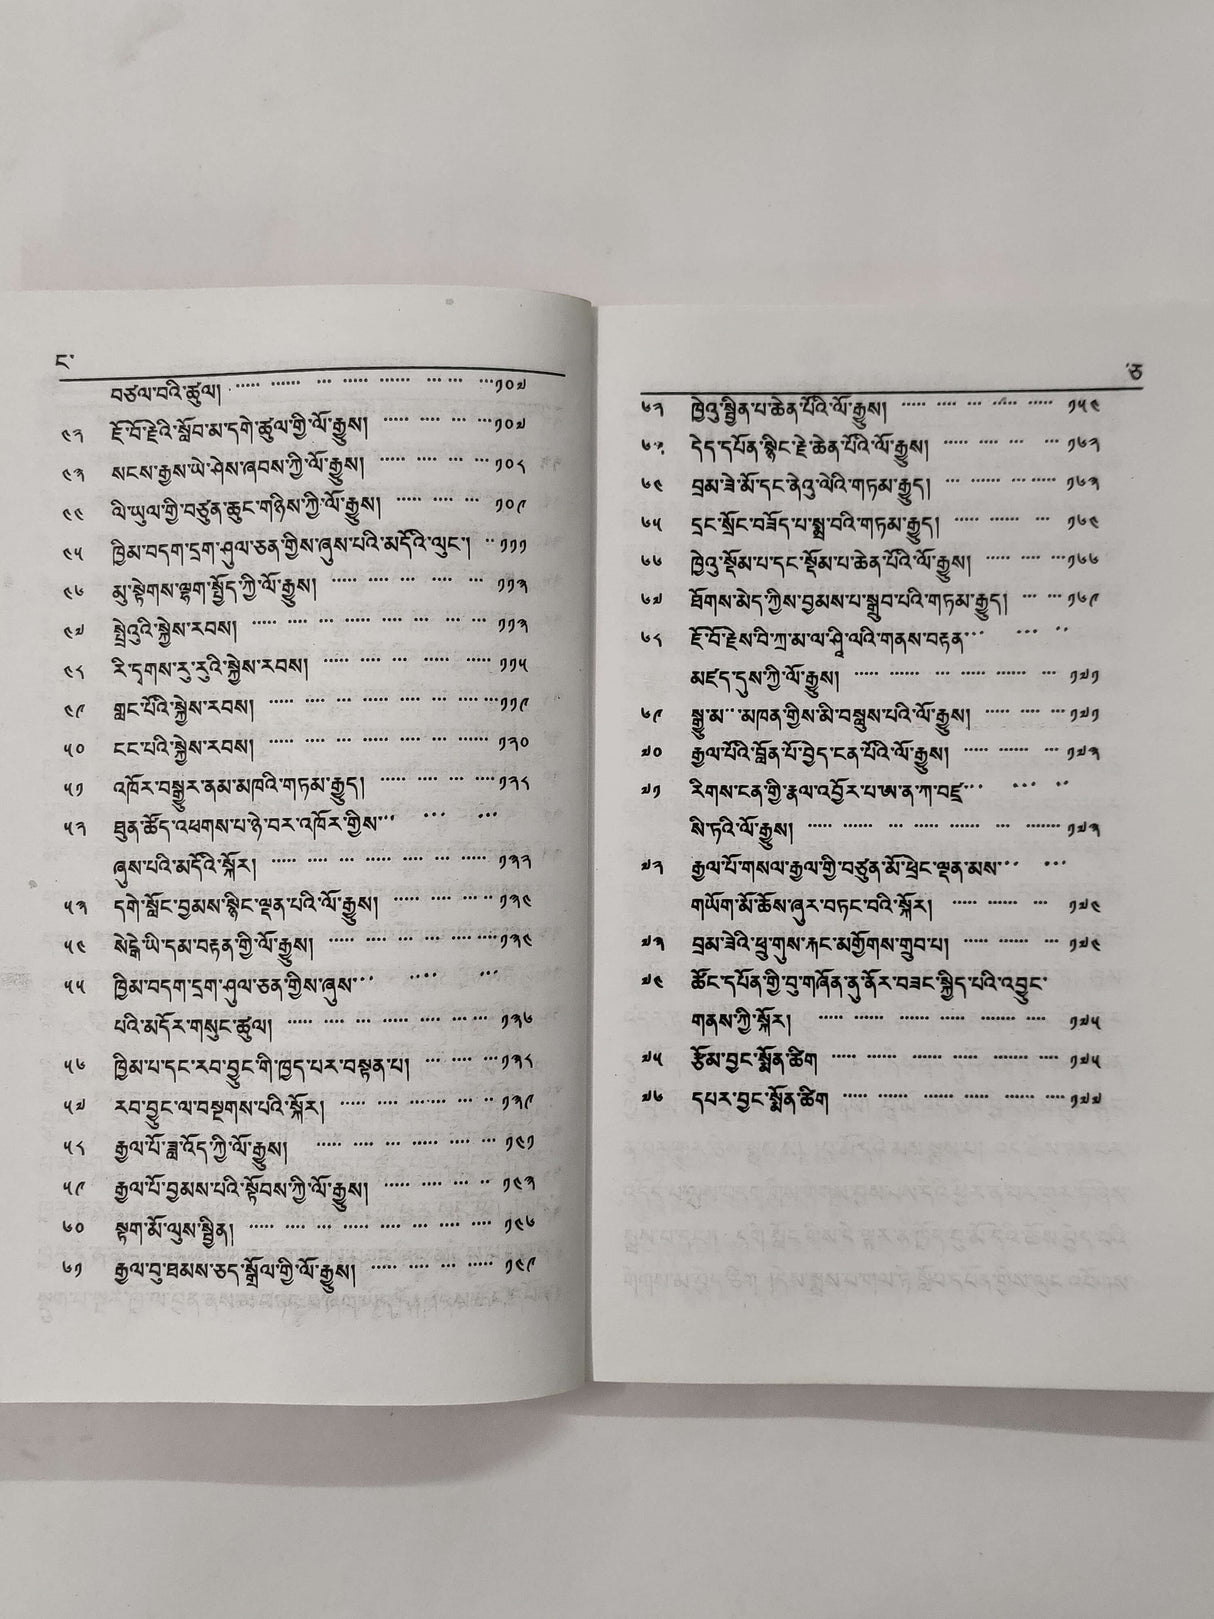 ང་
བཙལ་བའི་ཚུལ། ༡༠༧
༤༢ ཇོ་བོ་རྗེའི་སློབ་མ་དགེ་ཚུལ་གྱི་ལོ་རྒྱུས། ༡༠༧
༤༣ སངས་རྒྱས་ཡེ་ཤེས་ཞབས་ཀྱི་ལོ་རྒྱུས། ༡༠༨
༤༤ ལི་ཡུལ་གྱི་བཙུན་ཆུང་གཉིས་ཀྱི་ལོ་རྒྱུས། ༡༠༩
༤༥ ཁྱིམ་བདག་དྲག་ཤུལ་ཅན་གྱིས་ཞུས་པའི་མདོའི་ལུང་། ༡༡༡
༤༦ མུ་སྟེགས་ལྷག་སྤྱོད་ཀྱི་ལོ་རྒྱུས། ༡༡༣
༤༧ སྤྲེའུའི་སྐྱེས་རབས། ༡༡༣
༤༨ རི་དྭགས་རུ་རུའི་སྐྱེས་རབས། ༡༡༥
༤༩ གླང་པོའི་སྐྱེས་རབས། ༡༡༩
༥༠ ངང་པའི་སྐྱེས་རབས། ༡༢༠
༥༡ འཁོར་བསྒྱུར་ནམ་མཁའི་གཏམ་རྒྱུད། ༡༢༨
༥༢ ཐུན་ཚོད་འཕགས་པ་ཉེ་བར་འཁོར་གྱིས་
ཞུས་པའི་མདོའི་སྐོར། ༡༣༢
༥༣ དགེ་སློང་བྱམས་སྙིང་ལྡན་པའི་ལོ་རྒྱུས། ༡༣༤
༥༤ སེངྒེ་ཡི་དམ་བརྟན་གྱི་ལོ་རྒྱུས། ༡༣༤
༥༥ ཁྱིམ་བདག་དྲག་ཤུལ་ཅན་གྱིས་ཞུས་
པའི་མདོར་གསུང་ཚུལ། ༡༣༦
༥༦ ཁྱིམ་པ་དང་རབ་བྱུང་གི་ཁྱད་པར་བསྟན་པ། ༡༣༨
༥༧ རབ་བྱུང་ལ་བསྔགས་པའི་སྐོར། ༡༣༩
༥༨ རྒྱལ་པོ་ཟླ་འོད་ཀྱི་ལོ་རྒྱུས། ༡༤༡
༥༩ རྒྱལ་པོ་བྱམས་པའི་སྟོབས་ཀྱི་ལོ་རྒྱུས། ༡༤༣
༦༠ སྟག་མོ་ལུས་སྦྱིན། ༡༤༦
༦༡ རྒྱལ་བུ་ཐམས་ཅད་སྒྲོལ་གྱི་ལོ་རྒྱུས། ༡༤༩
ཅ
༦༢ ཁྱེའུ་སྦྱིན་པ་ཆེན་པོའི་ལོ་རྒྱུས། ༡༥༤
༦༣ དེད་དཔོན་སྙིང་རྗེ་ཆེན་པོའི་ལོ་རྒྱུས། ༡༦༢
༦༤ བྲམ་ཟེ་མོ་དང་ནེའུ་ལེའི་གཏམ་རྒྱུད། ༡༦༣
༦༥ དྲང་སྲོང་བཟོད་པ་སྨྲ་བའི་གཏམ་རྒྱུད། ༡༦༤
༦༦ ཁྱེའུ་སྡོམ་པ་དང་སྡོམ་པ་ཆེན་པོའི་ལོ་རྒྱུས། ༡༦༦
༦༧ ཐོགས་མེད་ཀྱིས་བྱམས་པ་སྒྲུབ་པའི་གཏམ་རྒྱུད། ༡༦༩
༦༨ ཇོ་བོ་རྗེས་བི་ཀྲ་མ་ལ་ཤཱི་ལའི་གནས་བརྟན་
མཛད་དུས་ཀྱི་ལོ་རྒྱུས། ༡༧༡
༦༩ སྒྱུ་མ་མཁན་གྱིས་མི་བསླུས་པའི་ལོ་རྒྱུས། ༡༧༡
༧༠ རྒྱལ་པོའི་བློན་པོ་བྱེད་ངན་པོའི་ལོ་རྒྱུས། ༡༧༣
༧༡ རིགས་ངན་གྱི་རྣལ་འབྱོར་པ་ཨ་ན་ཀ་བཛྲ་
སི་ཏའི་ལོ་རྒྱུས། ༡༧༣
༧༢ རྒྱལ་པོ་གསལ་རྒྱལ་གྱི་བཙུན་མོ་ཕྲེང་ལྡན་མས་
གཡོག་མོ་ཆོས་ཞུར་བཏང་བའི་སྐོར། ༡༧༤
༧༣ བྲམ་ཟེའི་ཕྲུ་གུས་རྐང་མགྱོགས་གྲུབ་པ། ༡༧༤
༧༤ ཚོང་དཔོན་གྱི་བུ་གཞོན་ནུ་ནོར་བཟང་སྐྱིད་པའི་འབྱུང་
གནས་ཀྱི་སྐོར། ༡༧༥
༧༥ རྩོམ་བྱང་སྨོན་ཚིག ༡༧༥
༧༦ དཔར་བྱང་སྨོན་ཚིག ༡༧༧